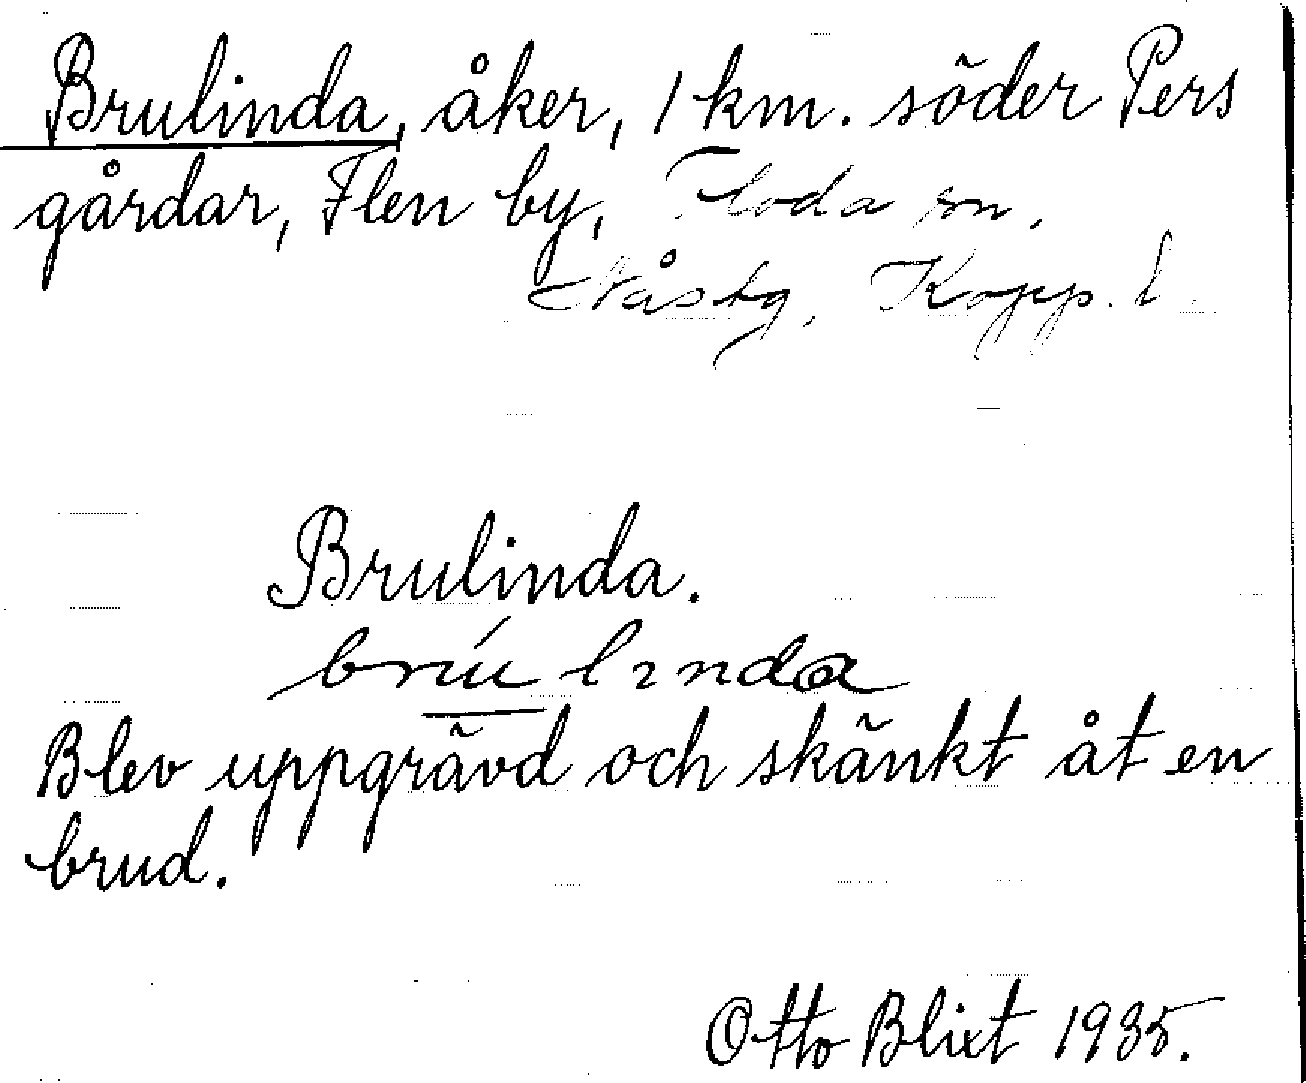 Brulinda, åker, 1 km. söder Pers
gårdar, Flen by, Floda sn.
Nåstg, Kopp. l.
Brulinda.
brúu lında
Blev uppgrävd och skänkt åt en
brud.
Otto Blixt 1935.